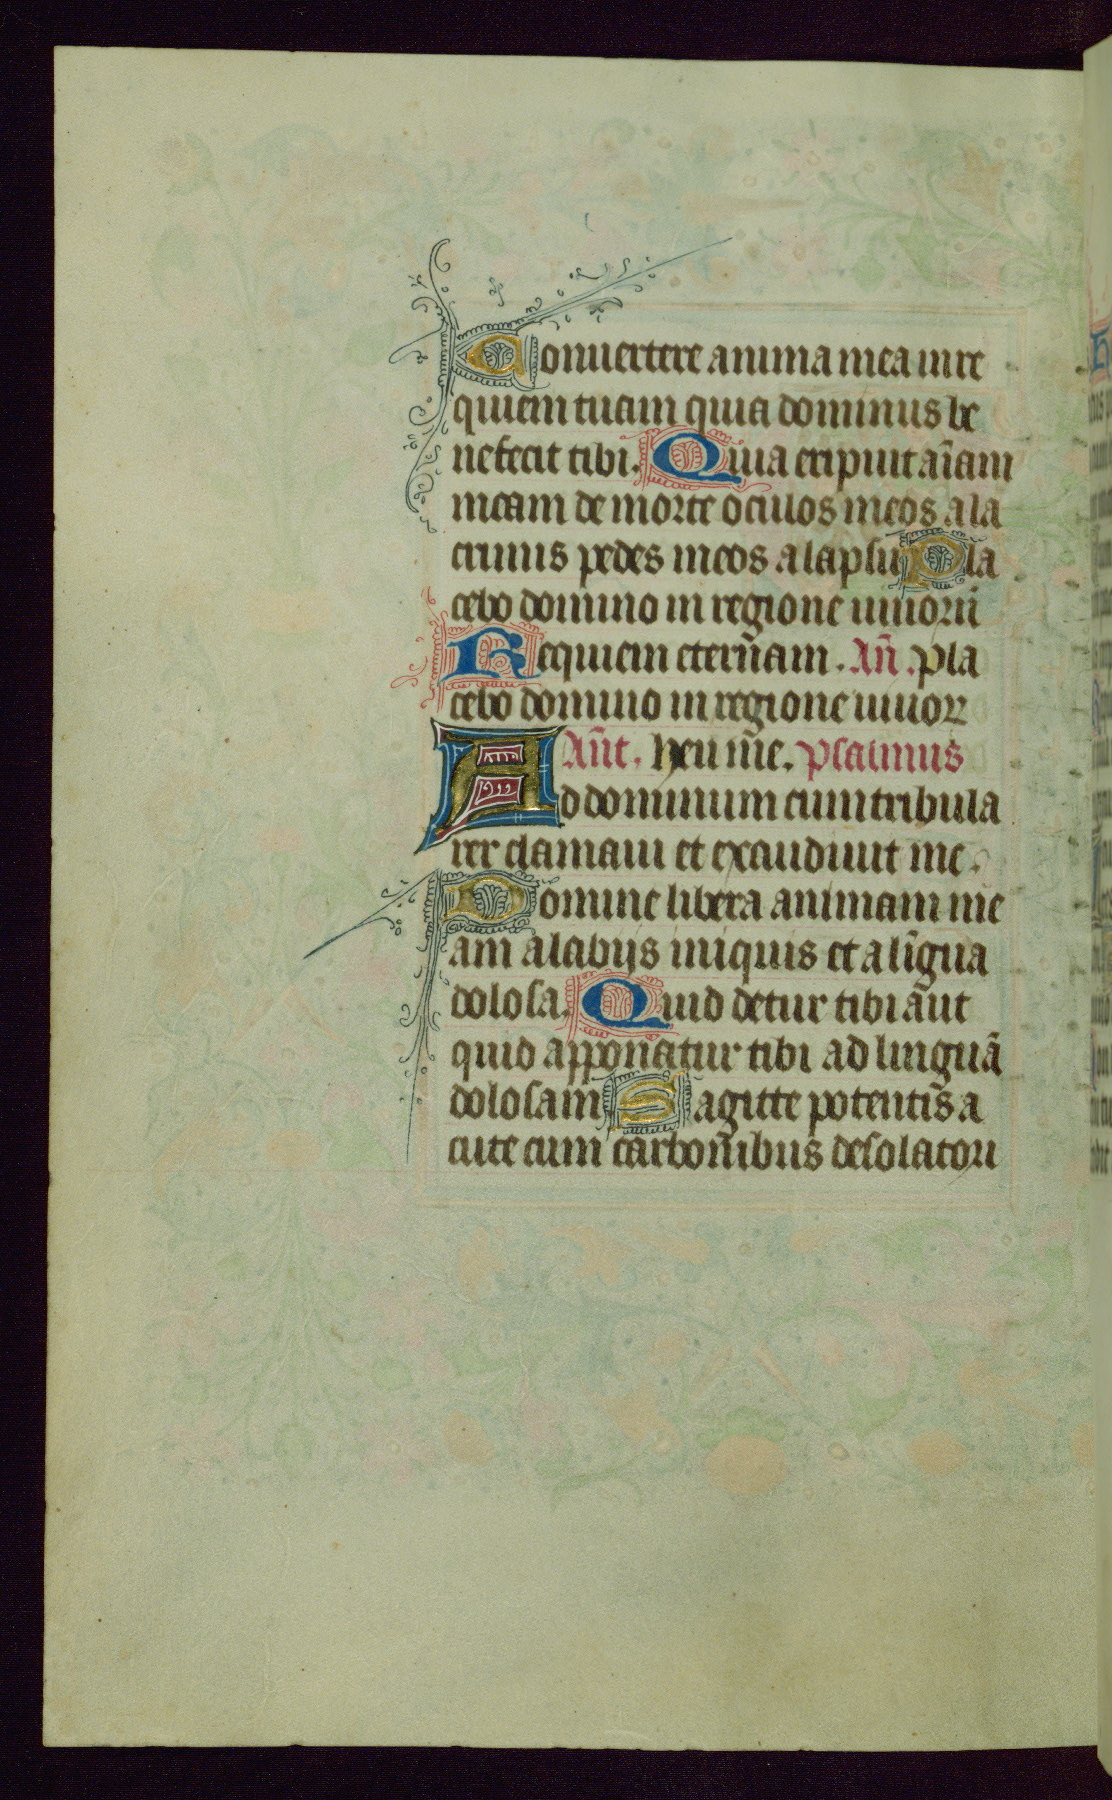 Conuertere anima mea in re
quiem tuam quia dominus be
nefecit tibi. Quia eripuit aīam
meam de morte oculos meos a la
crimis pedes meos a lapsu Pla
cebo domino in regione uiuorū
Requiem etern̄am. An̄. pla
cebo domino in regione uiuorꝝ
An̄t. Heu m̄e. psalmus
Ad dominum cum tribula
rer clamaui et exaudiuit me.
Domine libera animam me
am a labijs iniquis et a līgua
dolosa. Quid detur tibi āut
quid apponatur tibi ad linguā
dolosam Sagitte potentis a
cute cum carbonibus desolatori